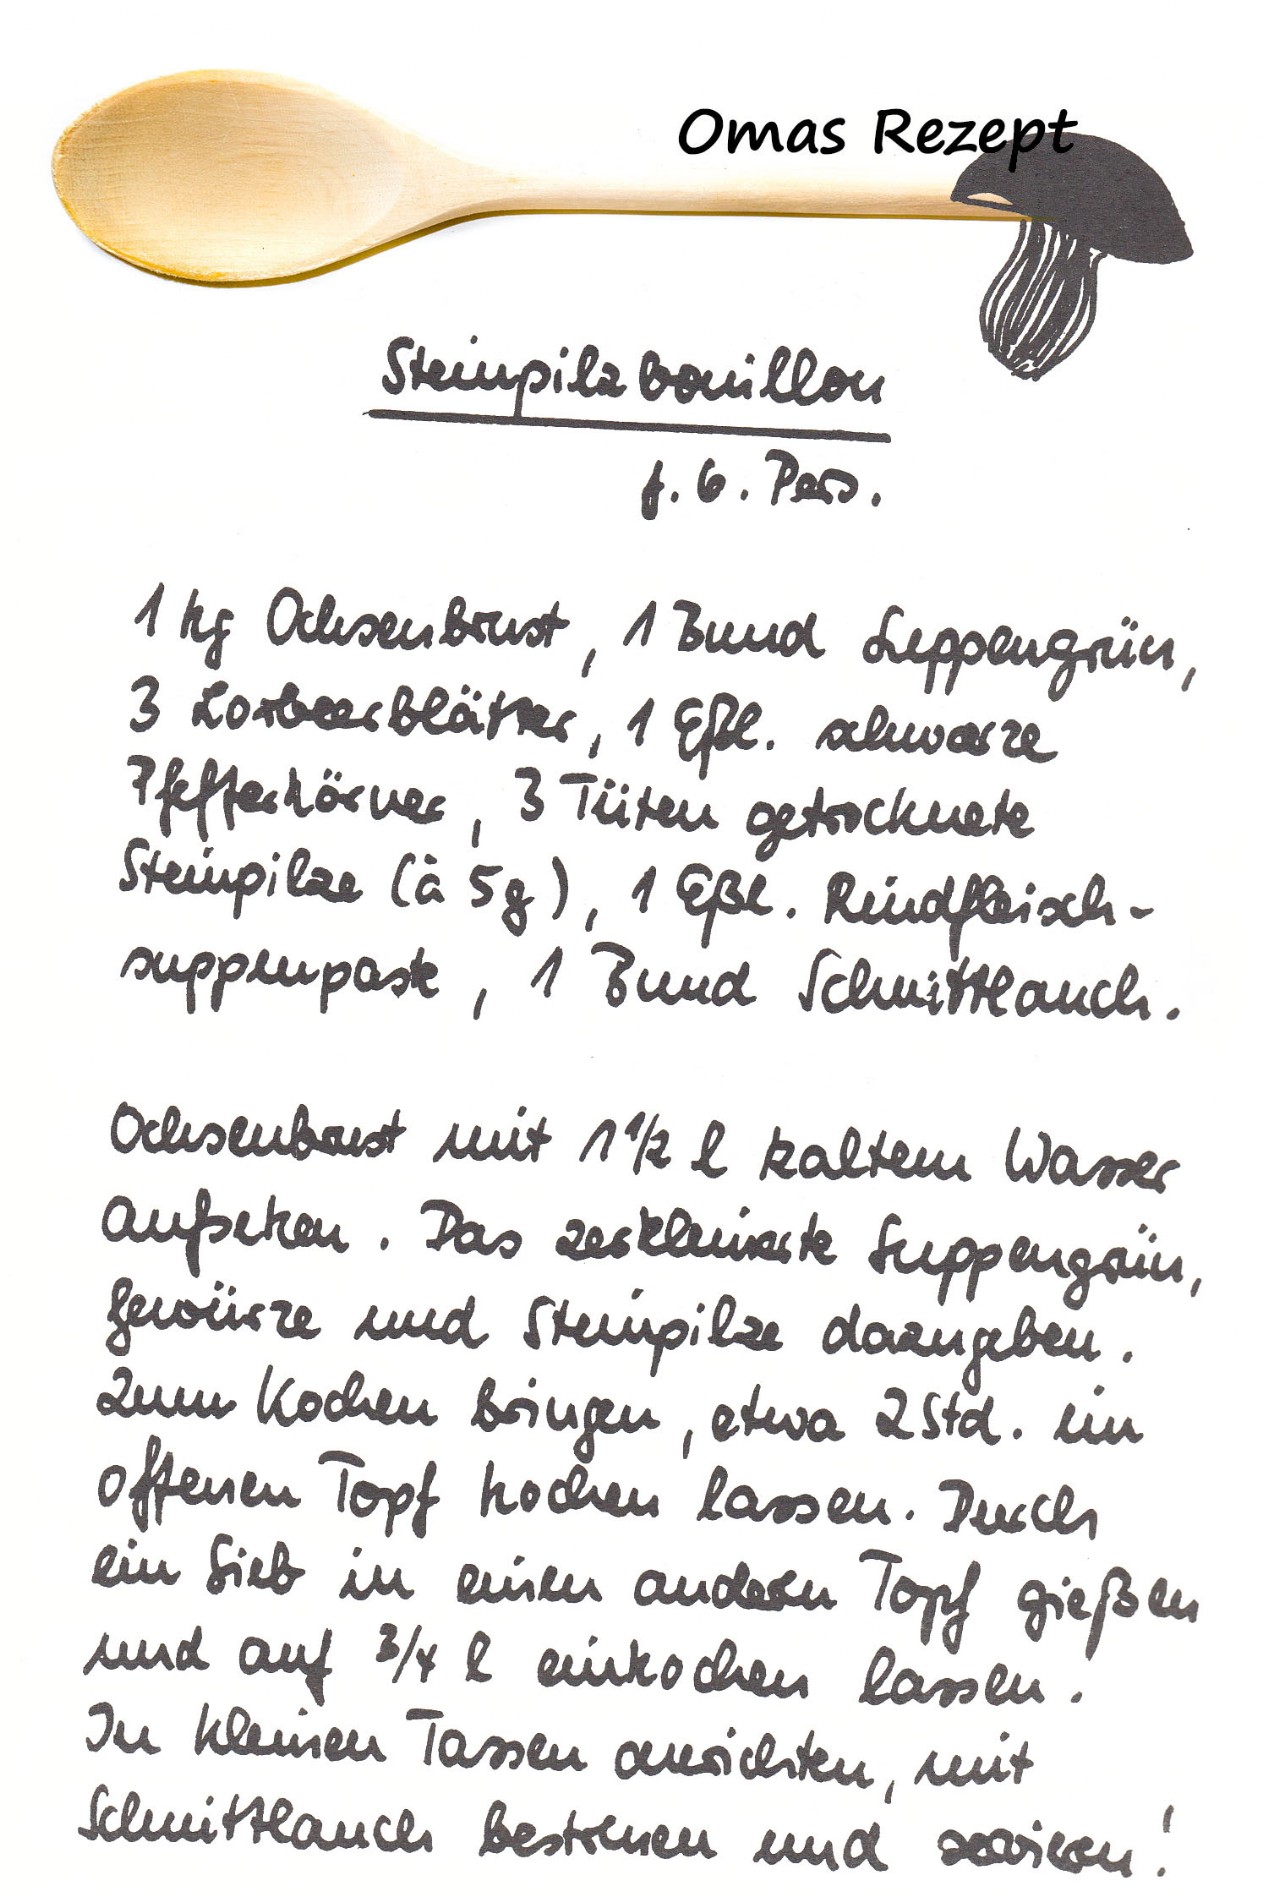 Omas Rezept
Steinpilzbouillon
f. 6. Pers.
1 kg Ochsenbrust, 1 Bund Suppengrün,
3 Lorbeerblätter, 1 Eßl. schwarze
Pfefferkörner, 3 Tüten getrocknete
Steinpilze (à 5g), 1 Eßl. Rindfleisch-
suppenpaste, 1 Bund Schnittlauch.
Ochsenbrust mit 1 1/2 l kaltem Wasser
aufsetzen. Das zerkleinerte Suppengrün,
Gewürze und Steinpilze dazugeben.
Zum Kochen bringen, etwa 2 Std. im
offenen Topf kochen lassen. Durch
ein Sieb in einen andern Topf gießen
und auf 3/4 l einkochen lassen.
In kleinen Tassen anrichten, mit
Schnittlauch bestreuen und servieren!